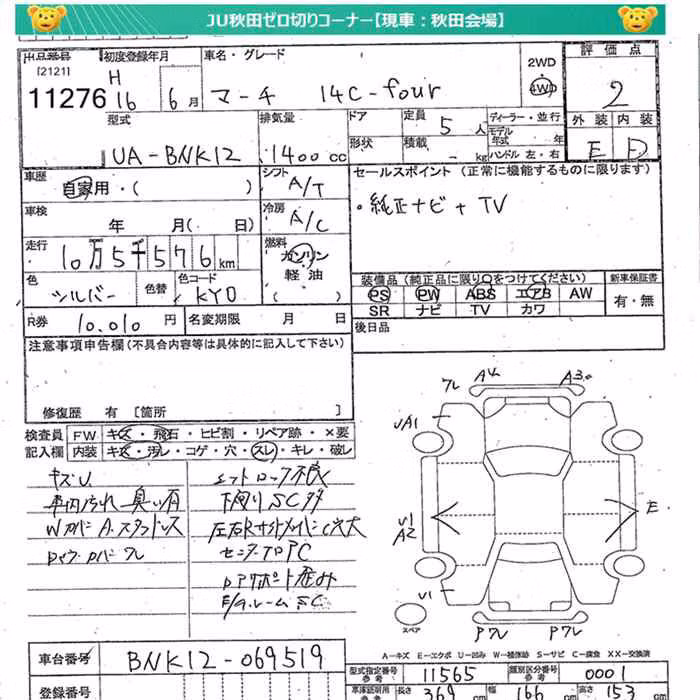 JU秋田ゼロ切りコーナー【現車：秋田会場】
出品番号 初度登録年月 車名・グレード 2WD 評価点
[2121] H 4WD
11276 16年 6月 マーチ 14C-four 2
型式 排気量 ドア 定員 5人 ディーラー・並行 外装 内装
モデル年式 年
UA-BNK12 1400cc 形状 積載 - kg ハンドル 左・右 E D
車歴 シフト セールスポイント (正常に機能するものに限ります)
自家用・( ) A/T
・純正ナビ+TV
車検 冷房
年 月( 日) A/C
走行 燃料
10万5千576km ガソリン
軽油
色 色替 色コード ( )
シルバー KY0
装備品 (純正品に限り○をつけてください) 新車保証書
PS PW ABS エアB AW 有・無
SR ナビ TV カワ
R券 10,010円 名変期限 月 日 後日品
注意事項申告欄(不具合内容等は具体的に記入して下さい)
修復歴 有 [箇所 ]
検査員 FW キズ・飛石・ヒビ割・リペア跡・×要
記入欄 内装 キズ・汚レ・コゲ・穴・スレ・キレ・破レ
キズU
車内汚れ 臭い有
下廻りSC多
フレ A4 A3
UA1
U1
A2
E
U1
スペア
Pフレ Pフレ
A-キズ E-エクボ U-凹み W-補修跡 S-サビ C-腐食 XX-交換済
車台番号 BNK12-069519
型式指定番号 11565 類別区分番号 0001
参考 参考
登録番号 車庫証明用 長さ 369cm 幅 166cm 高さ 153cm
参考